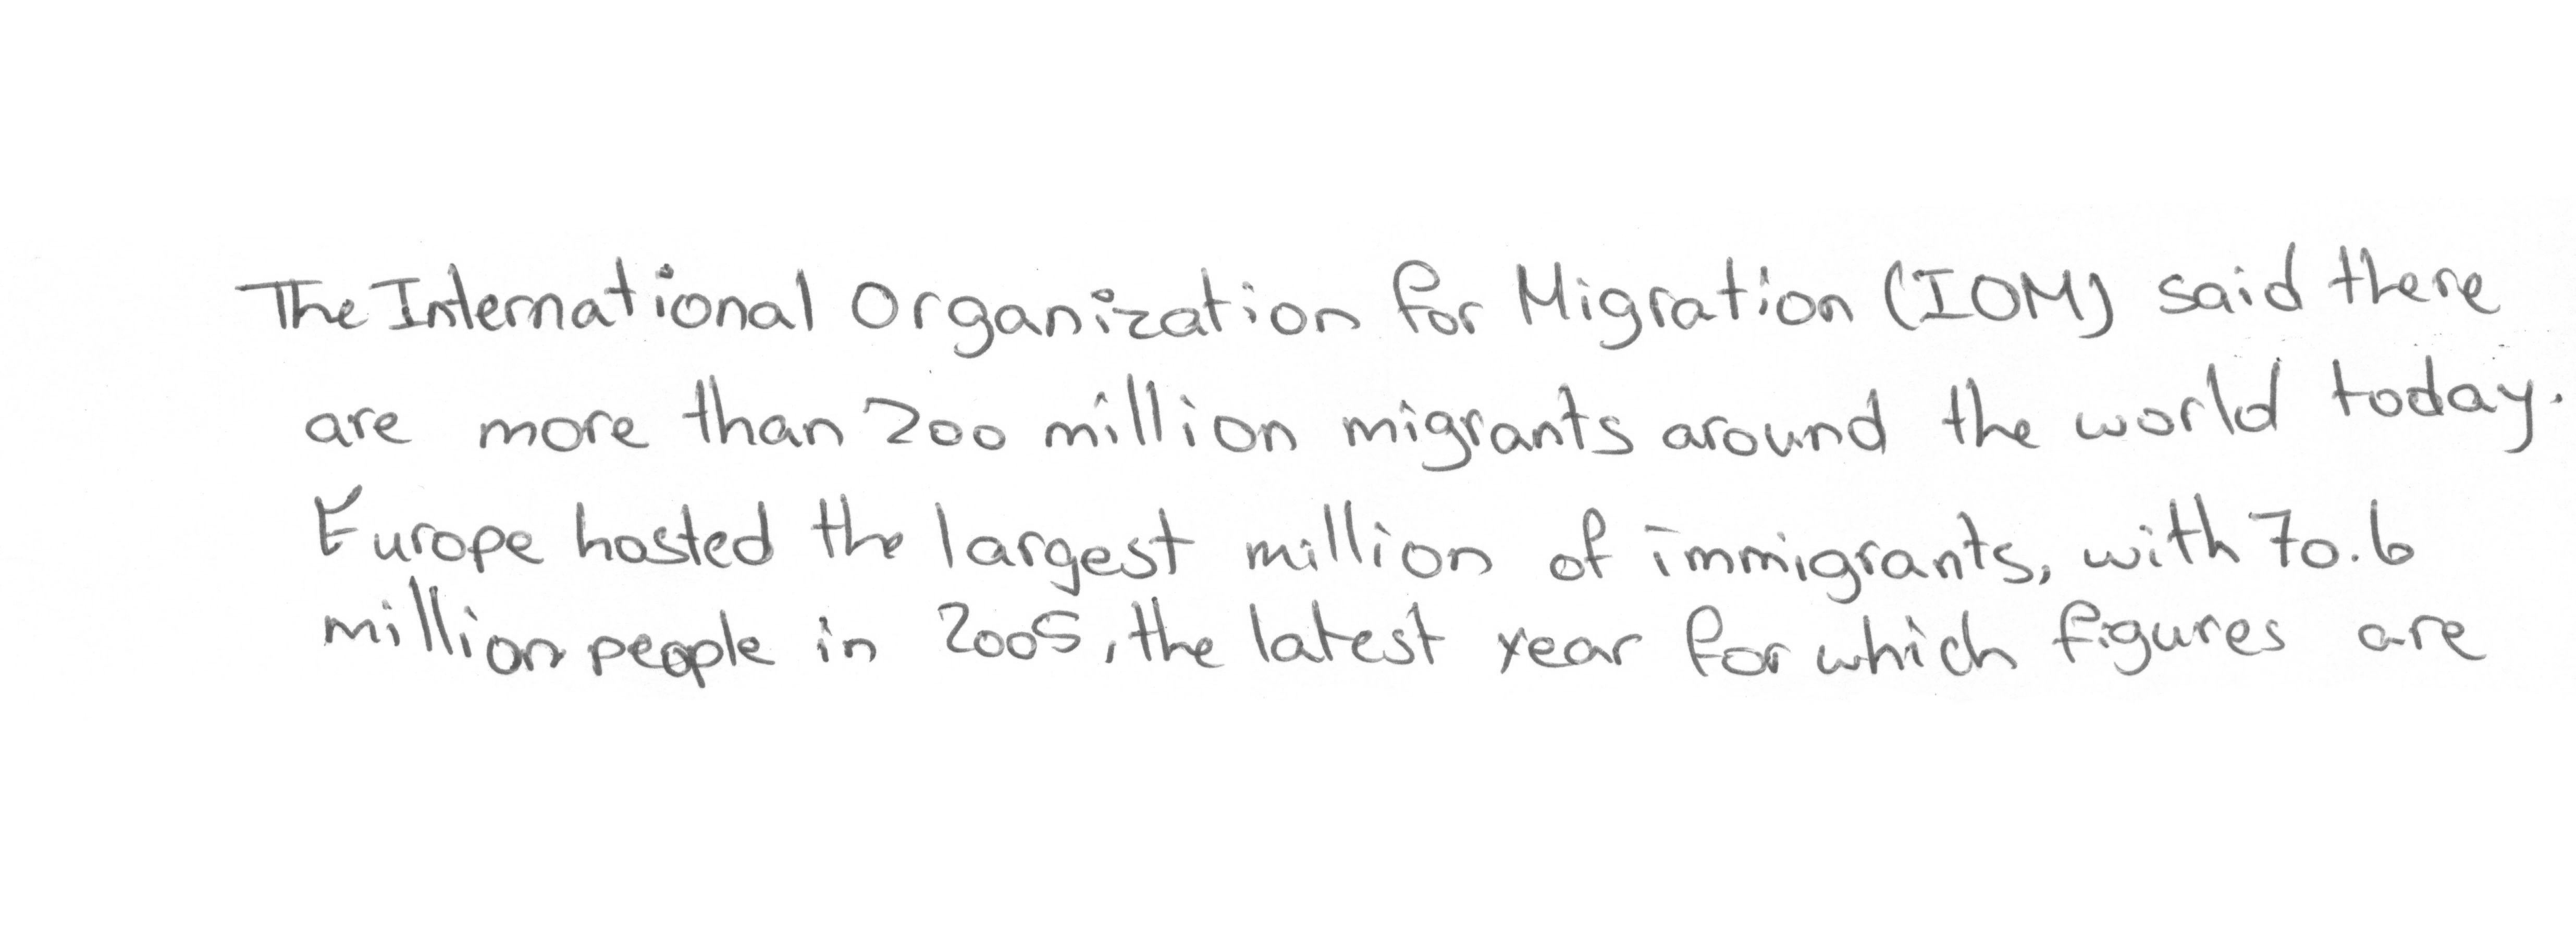 The International Organization for Migration (IOM) said there
are more than 200 million migrants around the world today.
Europe hosted the largest million of immigrants, with 70.6
million people in 2005, the latest year for which figures are